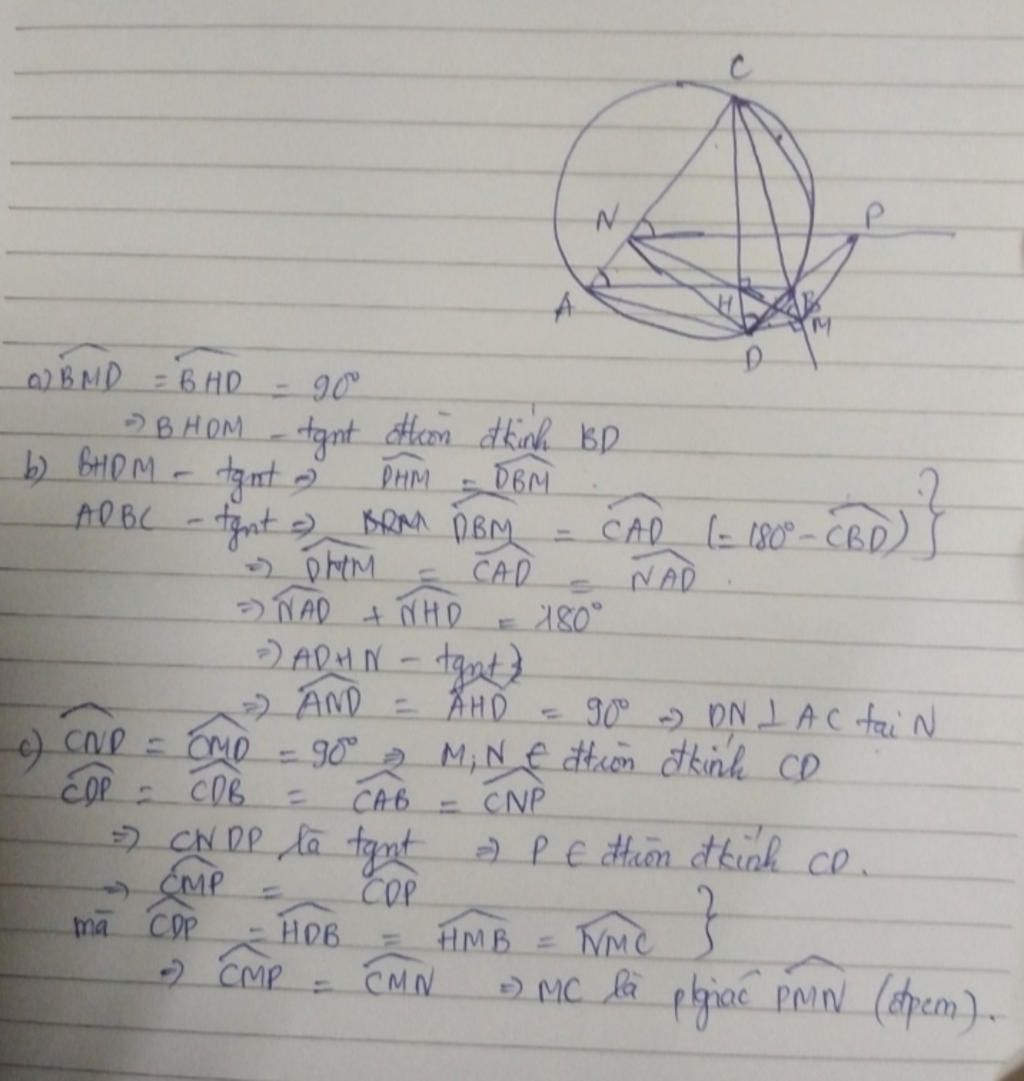 C
N
P
A
H
B
M
D
a) \widehat{BMD} = \widehat{BHD} = 90°
⇒ BHDM - tgnt đtròn đkính BD
b) BHDM - tgnt ⇒ \widehat{DHM} = \widehat{DBM}.
ADBC - tgnt ⇒ \widehat{DBM} = \widehat{CAD} (= 180° - \widehat{CBD}) }
⇒ \widehat{DHM} = \widehat{CAD} = \widehat{NAD}.
⇒ \widehat{NAD} + \widehat{NHD} = 180°
⇒ ADHN - tgnt }
⇒ \widehat{AND} = \widehat{AHD} = 90° ⇒ DN ⊥ AC tại N
c) \widehat{CND} = \widehat{CMD} = 90° ⇒ M, N ∈ đtròn đkính CD
\widehat{CDP} = \widehat{CDB} = \widehat{CAB} = \widehat{CNP}
⇒ CNDP là tgnt ⇒ P ∈ đtròn đkính CD.
⇒ \widehat{CMP} = \widehat{CDP}
mà \widehat{CDP} = \widehat{HDB} = \widehat{HMB} = \widehat{NMC} }
⇒ \widehat{CMP} = \widehat{CMN} ⇒ MC là pgiác \widehat{PMN} (đpcm).